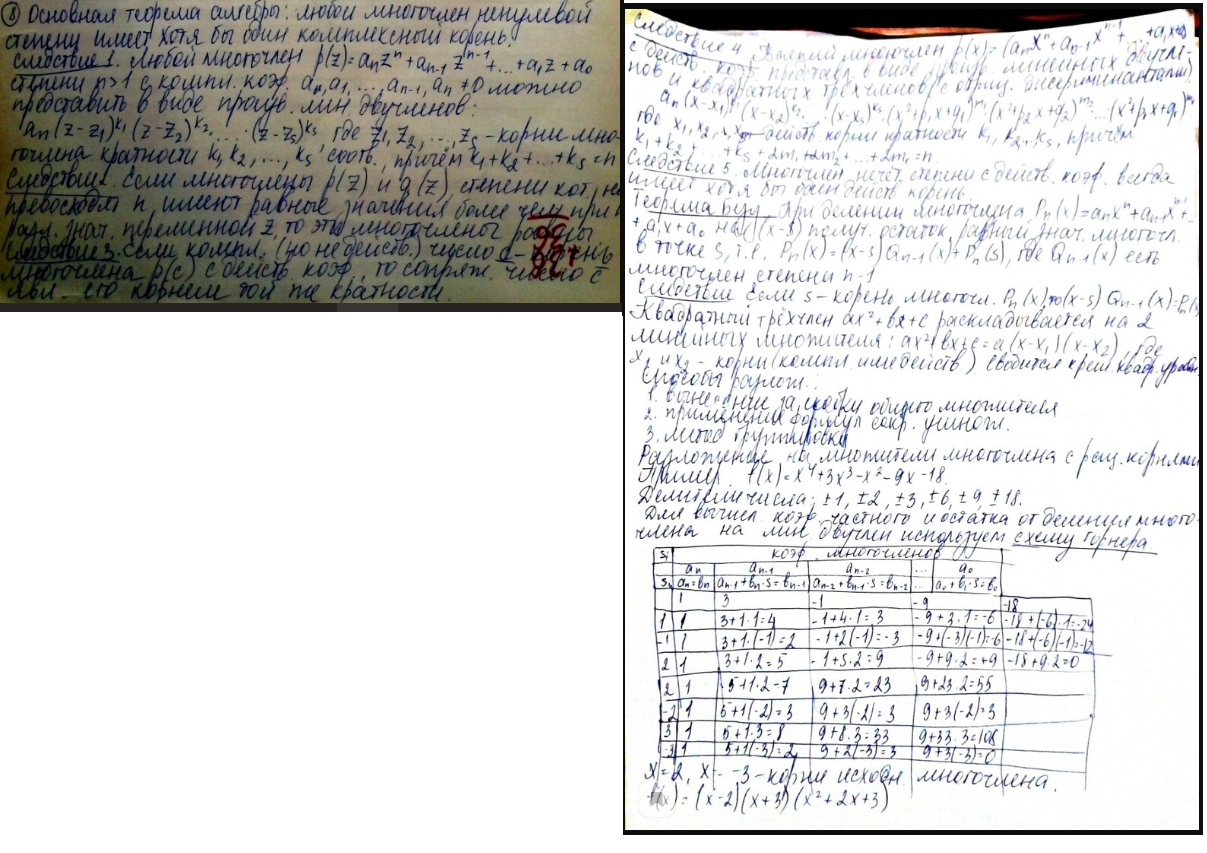 ① Основная теорема алгебры: любой многочлен ненулевой
степени имеет хотя бы один комплексный корень.
Следствие 1. Любой многочлен p(z)=aₙzⁿ+aₙ₋₁zⁿ⁻¹+...+a₁z+a₀
степени n>1 с компл. коэф. aₙ, a₁, ..., aₙ₋₁, aₙ≠0 можно
представить в виде произв. лин двучленов:
aₙ(z-z₁)^k₁(z-z₂)^k₂...(z-zₛ)^kₛ, где z₁, z₂, ..., zₛ - корни мно-
гочлена кратности k₁, k₂, ..., kₛ соотв., причём k₁+k₂+...+kₛ=n
Следствие 2. Если многочлены p(z) и q(z), степени кот. не
превосходят n, имеют равные значения более чем при n
разл. знач. переменной z, то эти многочлены равны
Следствие 3. если компл. (но не действ.) число c - корень
многочлена p(c) с действ коэф., то сопряж. число c̄
явл. его корнем той же кратности.
Следствие 4. Всякий многочлен p(x)=(aₙxⁿ+aₙ₋₁xⁿ⁻¹+...+a₁x+a₀
с действ. коэф. представл. в виде произв. линейных двучле-
нов и квадратных трёхчленов (с отриц. дискриминантами)
aₙ(x-x₁)^k₁(x-x₂)^k₂...(x-xₛ)^kₛ(x²+p₁x+q₁)^m₁(x²+p₂x+q₂)^m₂...
где x₁, x₂, - действ корни кратности k₁, k₂..kₛ, причём
k₁+k₂+...+kₛ+2m₁+2m₂+...+2mₗ=n.
Следствие 5. Многочлен нечет. степени с действ. коэф. всегда
имеет хотя бы один действ корень.
Теорема Безу. При делении многочлена Pₙ(x)=aₙxⁿ+aₙ₋₁xⁿ⁻¹+..
+a₁x+a₀ на (x-s) получ. остаток, равный знач. многочл.
в точке s, т.е. Pₙ(x)=(x-s)Qₙ₋₁(x)+Pₙ(s), где Qₙ₋₁(x) есть
многочлен степени n-1
Следствие если s - корень многочл. Pₙ(x), то (x-s) Qₙ₋₁(x)=Pₙ(x)
Квадратный трёхчлен ax²+bx+c раскладывается на 2
линейных множителя: ax²+bx+c=a(x-x₁)(x-x₂), где
x₁ и x₂ - корни (компл. или действ) сводится к реш квадр. уравн.
Способы разлож.:
1. вынесение за скобки общего множителя
2. применение формул сокр. умнож.
3. метод группировки
Разложение на множители многочлена с рац. корнями
Пример. f(x)=x⁴+3x³-x²-9x-18.
Делители числа: ±1, ±2, ±3, ±6, ±9, ±18.
Для вычисл. коэф. частного и остатка от деления много-
члена на лин. двучлен используем схему Горнера
S: коэф. многочленов
aₙ aₙ₋₁ aₙ₋₂ ... a₀
S: aₙ=bₙ aₙ₋₁+bₙ·s=bₙ₋₁ aₙ₋₂+bₙ₋₁·s=bₙ₋₂ ... a₀+b₁·s=b₀
1 3 -1 -9 -18
1 1 3+1·1=4 -1+4·1=3 -9+3·1=-6 -18+(-6)·1=-24
-1 1 3+1·(-1)=2 -1+2(-1)=-3 -9+(-3)(-1)=-6 -18+(-6)(-1)=-12
2 1 3+1·2=5 -1+5·2=9 -9+9·2=+9 -18+9·2=0
2 1 5+1·2=7 9+7·2=23 9+23·2=55
-2 1 5+1(-2)=3 9+3(-2)=3 9+3(-2)=3
3 1 5+1·3=8 9+8·3=33 9+33·3=108
-3 1 5+1(-3)=2 9+2(-3)=3 9+3(-3)=0
x=2, x=-3 - корни исходн. многочлена.
f(x)=(x-2)(x+3)(x²+2x+3)